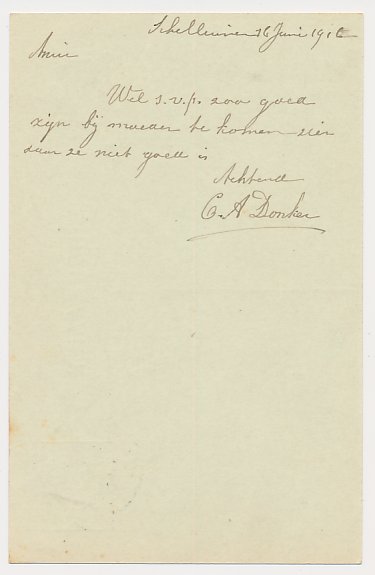 Schelluinen 16 Juni 1916
Amice
Wel s.v.p. zoo goed
zijn bij moeder te komen zien
daar ze niet goed is
Achtend
C. A Donker